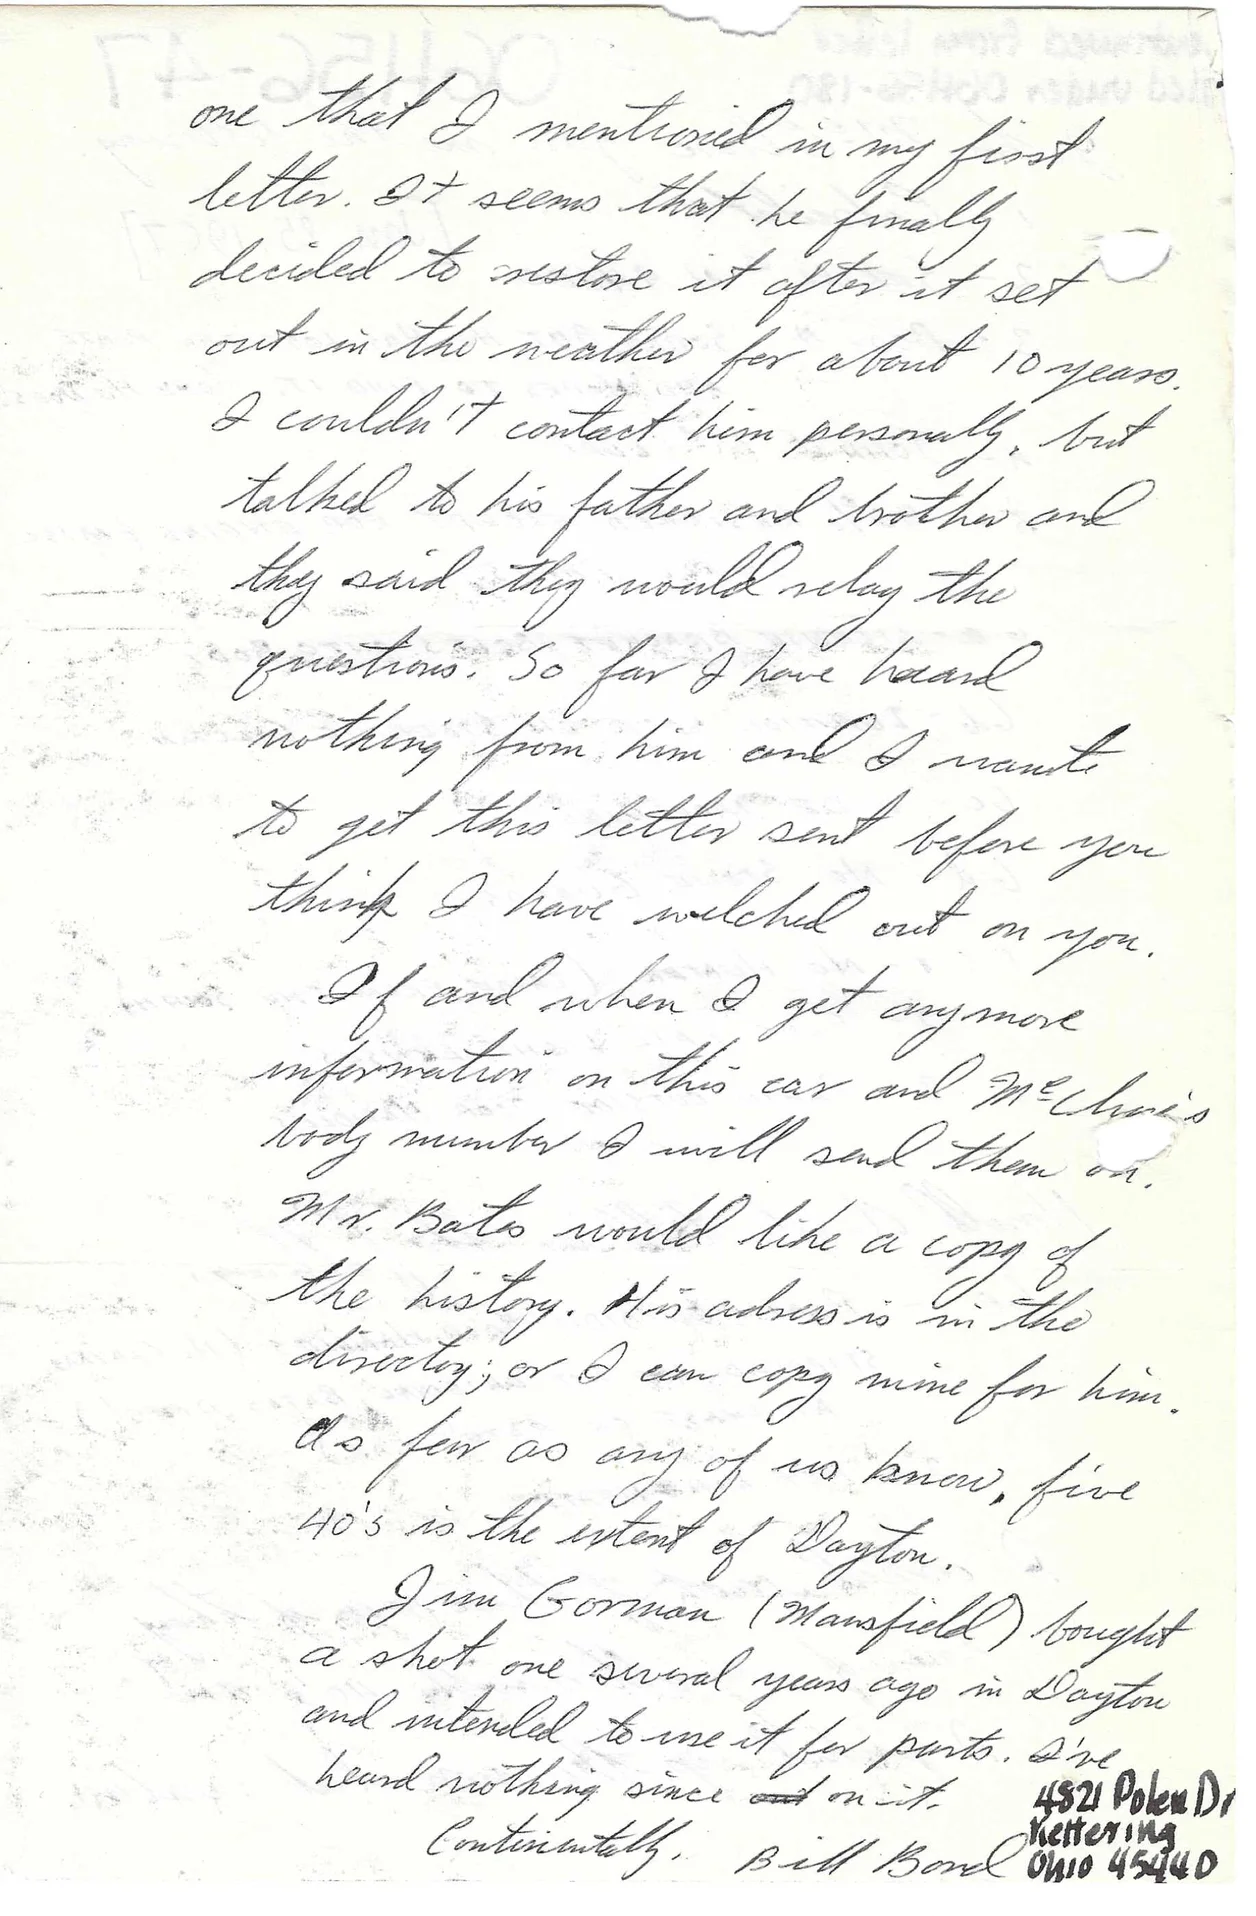 06H56-47
one that I mentioned in my first
letter. It seems that he finally
decided to restore it after it set
out in the weather for about 10 years.
I couldn't contact him personally, but
talked to his father and brother and
they said they would relay the
questions. So far I have heard
nothing from him and I want
to get this letter sent before you
think I have welched out on you.
If and when I get anymore
information on this car and McClure's
body number I will send them on.
Mr. Bates would like a copy of
the history. His adress is in the
directoy; or I can copy mine for him.
As far as any of us know, five
40's is the extent of Dayton.
Jim Gorman (Mansfield) bought
a shot one several years ago in Dayton
and intended to use it for parts. I've
heard nothing since on it.
Continentally, Bill Bond
4821 Polen Dr
Kettering
Ohio 45440